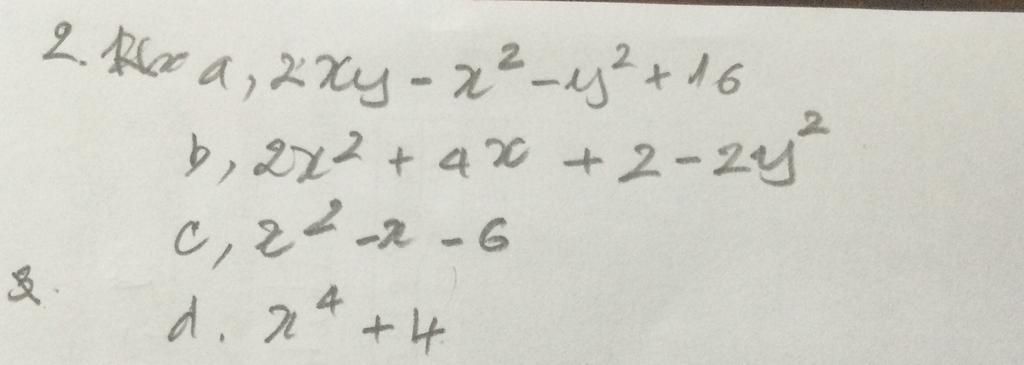 2. a, 2xy - x² - y² + 16
b, 2x² + 4x + 2 - 2y²
c, x² - x - 6
d. x⁴ + 4